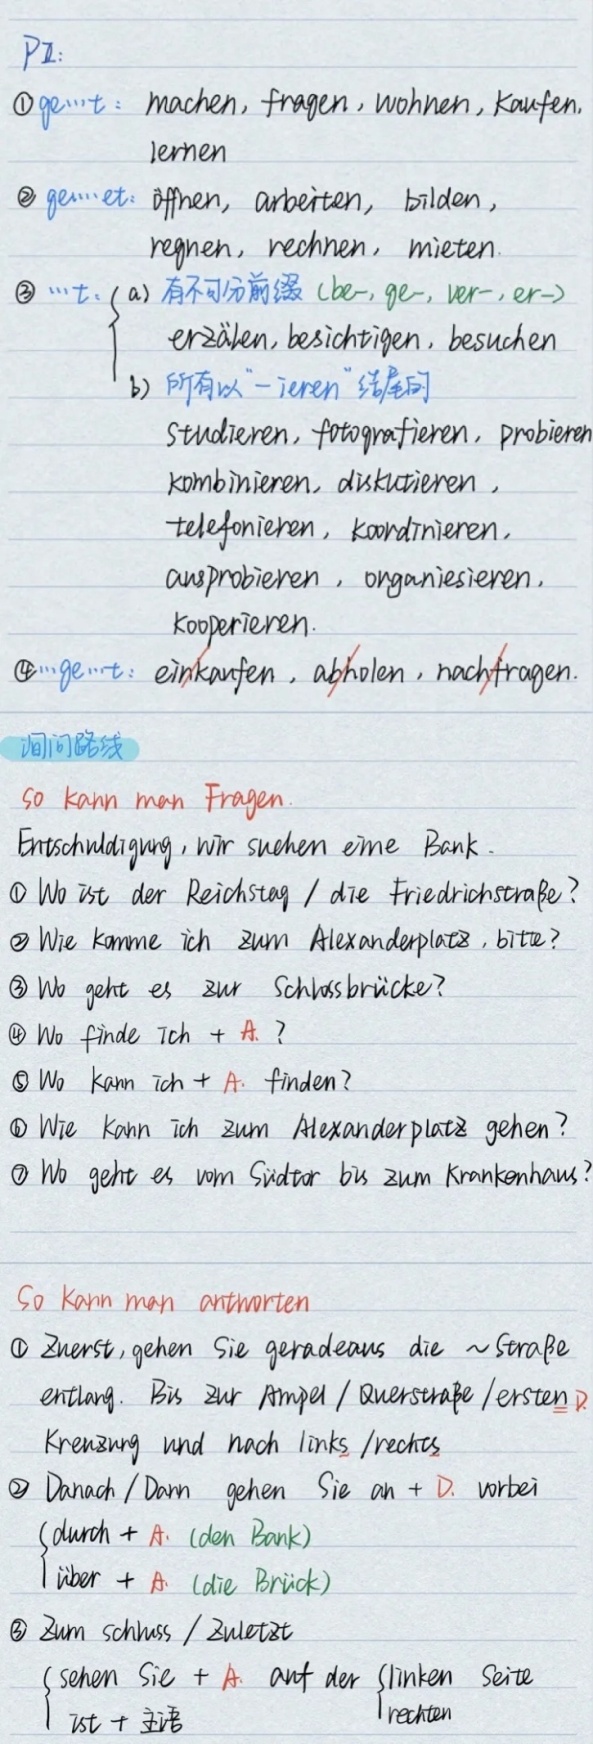 PⅡ:
① ge…t: machen, fragen, wohnen, kaufen,
lernen
② ge…et: öffnen, arbeiten, bilden,
regnen, rechnen, mieten.
③ …t: a) 有不可分前缀 (be-, ge-, ver-, er-)
erzälen, besichtigen, besuchen
b) 所有以"-ieren"结尾的
studieren, fotografieren, probieren
kombinieren, diskutieren,
telefonieren, koordinieren,
ausprobieren, organiesieren,
kooperieren.
④ …ge…t: ein/kaufen, ab/holen, nach/fragen.
询问路线
So kann man Fragen.
Entschuldigung, wir suchen eine Bank.
① Wo ist der Reichstag / die Friedrichstraße?
② Wie komme ich zum Alexanderplatz, bitte?
③ Wo geht es zur Schlossbrücke?
④ Wo finde ich + A. ?
⑤ Wo kann ich + A. finden?
⑥ Wie kann ich zum Alexanderplatz gehen?
⑦ Wo geht es vom Südtor bis zum Krankenhaus?
So kann man antworten
① Zuerst, gehen Sie geradeaus die ~Straße
entlang. Bis zur Ampel / Querstraße / ersten D.
Kreuzung und nach links /rechts
② Danach / Dann gehen Sie an + D. vorbei
durch + A. (den Bank)
über + A. (die Brück)
③ Zum schluss / Zuletzt
sehen Sie + A. auf der linken Seite
ist + 主语 rechten